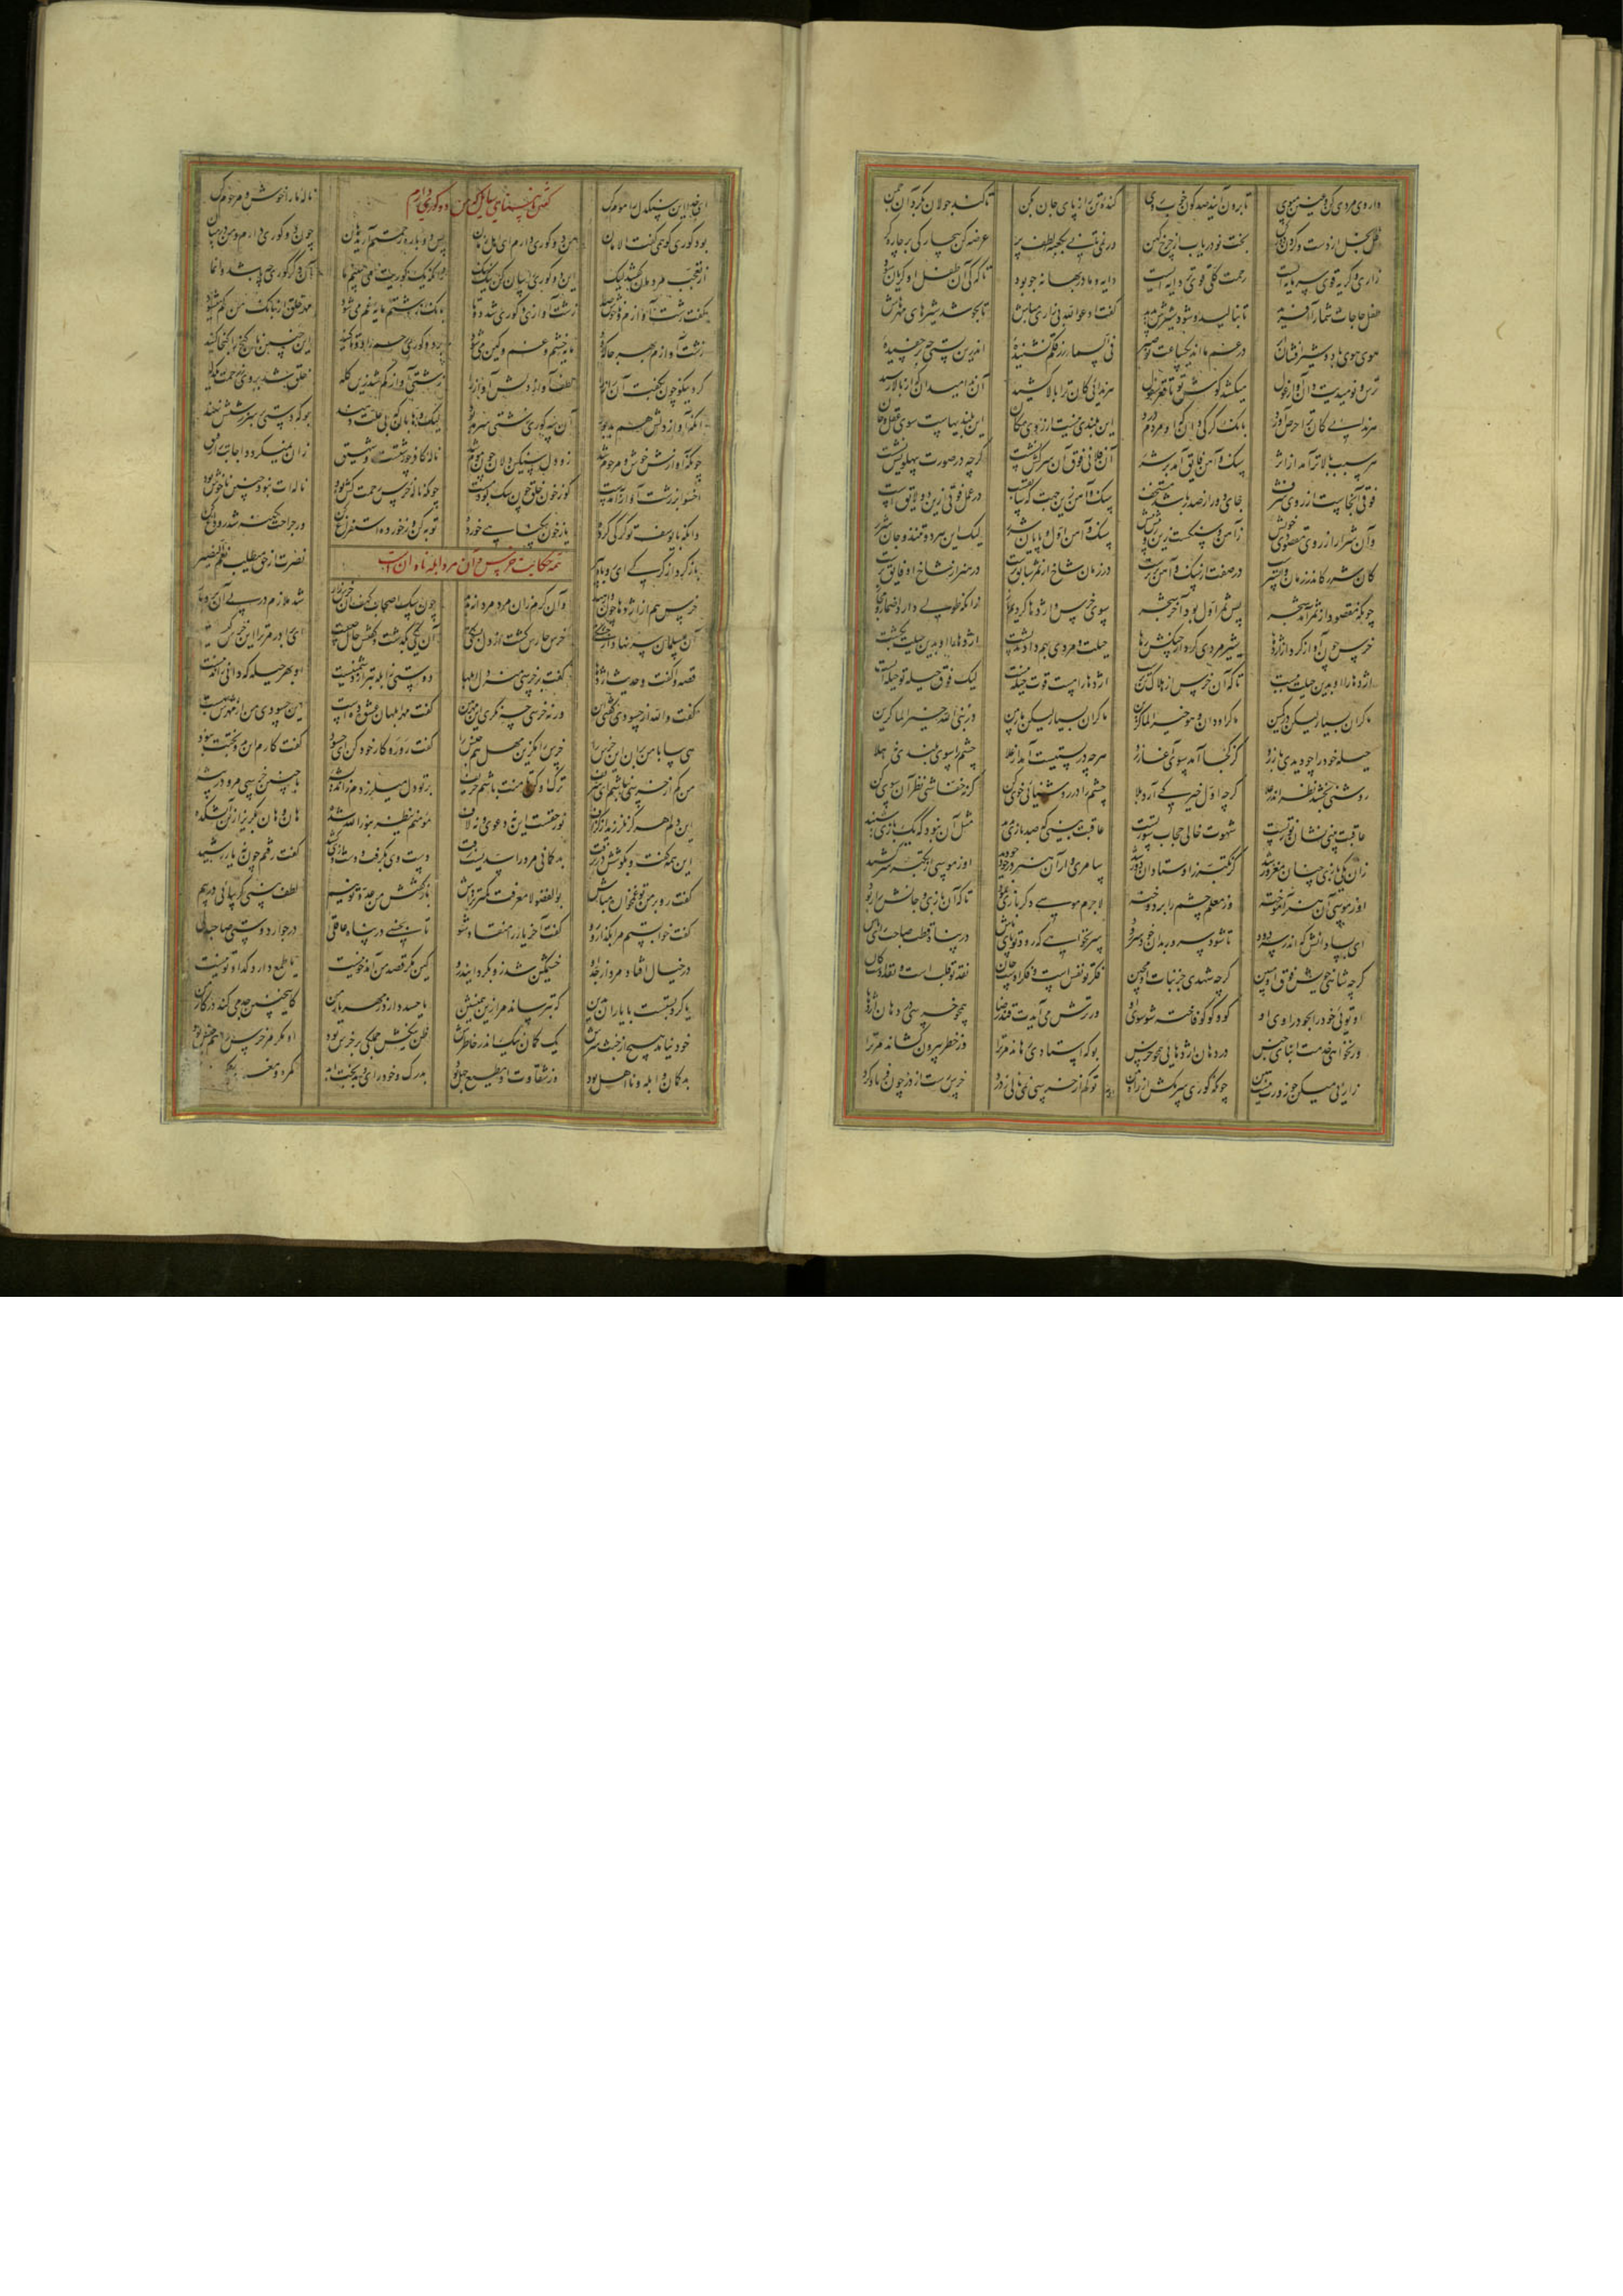 داروی مردی کن و عنین مپوی تا برون آیند صد گون خوب روی کنده تن را ز پای جان بکن تا کند جولان بگرد آن چمن
غل بخل از دست و گردن دور کن بخت نو دریاب از چرخ کهن ور نمی تانی بکعبه لطف پر عرضه کن بیچارگی بر چاره گر
زاری و گریه قوی سرمایه ایست رحمت کلی قوی تر دایه ایست دایه و مادر بهانه جو بود تا که کی آن طفل او گریان شود
طفل حاجات شما را آفرید تا بنالید و شود شیرش پدید گفت ادعوا الله بی زاری مباش تا بجوشد شیرهای مهرهاش
هوی هوی باد و شیر افشان ابر در غم مااند یکساعت تو صبر فی السماء رزقکم نشنیدهٔ اندرین پستی چه بر چفسیدهٔ
ترس و نومیدیت دان آواز غول میکشد گوش تو تا قعر سفول هر ندائی کان ترا بالا کشید آن ندا میدان که از بالا رسید
هر ندایی کان ترا حرص آورد بانک گرگی دان که او مردم درد این بلندی نیست از روی مکان این بلندیهاست سوی عقل و جان
هر سبب بالاتر آمد از اثر سنگ و آهن فایق آمد بر شرر آن فلانی فوق آن سرکش نشست گرچه در صورت بپهلویش نشست
فوقی آنجاست از روی شرف جای دور از صدر باشد مستخف سنگ و آهن زین جهت که سابق است در عمل فوقی این دو لایق است
وآن شرر از روی مقصودی خویش ز آهن و سنگست زین رو پیش پیش سنگ و آهن اول و پایان شرر لیک این هر دو تنند و جان شرر
کان شرر کاندر زمان واپس ترست در صفت از سنگ و آهن برترست در زمان شاخ از ثمر سابق ترست در هنر از شاخ او فایق ترست
چونکه مقصود از شجر آمد ثمر پس ثمر اول بود آخر شجر سوی خرس و اژدها کردیم زانکه طولی دارد اضمار مجاز
خرس چون آواز کرد از اژدها شیر مردی کرد از چنگش رها حیلت و مردی بهم دادند پشت اژدها را او بدین حیلت بکشت
اژدها را او بدین حیلت ببست تا که آن خرس از هلاک تن برست اژدها را هست قوت حیله نیست لیک فوق حیله تو حیله ایست
حیله خود را چو دیدی باز رو کز کجا آمد سوی آغاز رو هرچه در پستیست آمد از علا چشم را سوی بلندی نه هلا
روشنی بخشد نظر اندر علا گرچه اول خیرگی آرد بلا چشم را در روشنائی خوی کن گرنه خفاشی نظر آن سوی کن
عاقبت بینی نشان نور تست شهوت حالی حجاب سور تست عاقبت بینی که صد بازی بدید مثل آن نبود که یک بازی شنید
زان یکی بازی چنان مغرور شد کز تکبر ز اوستادان دور شد سامری وار آن هنر در خود چو دید او ز موسی از تکبر سر کشید
او ز موسی آن هنر آموخته وز معلم چشم را بر دوخته لاجرم موسی دگر بازی نمود تا که آن بازی و جانش را ربود
ای بسا دانش که اندر سر دود تا شود سرور بدان خود سر رود سر نخواهی که رود تو پای باش در پناه قطب صاحب رای باش
گرچه شاهی خویش فوق او مبین گرچه شهدی جز نبات او مچین فکر تو نقش است و فکر اوست جان نقد تو قلب است و نقد اوست کان
او توئی خود را بجو در اوی او کو و کو گو فاخته شو سوی او ور ترش می آیدت قند رضا همچو خرسی در دهان اژدها
ور نخواهی خدمت ابنای جنس در دهان اژدهایی همچو خرس بو که استادی رهاند مر ترا وز خطر بیرون کشاند مر ترا
زاریی میکن چو زورت نیست هین چونکه کوری سر مکش از راه بین تو کم از خرسی نمی نالی ز درد خرس رست از درد چون فریاد کرد
ای خدا این سنگدل را موم کن گفتن نابینای سایل که من دو کوری دارم ناله ما را خوش و مرحوم کن
بود کوری کو همی گفت الامان من دو کوری دارم ای اهل زمان پس دو باره رحمتم آرید هان چون دو کوری دارم و من در میان
از تعجب مردمان گفتند لیک این دو کوری را بیان کن نیک نیک زانکه یک کوریت می بینیم ما آن دگر کوری چه باشد وانما
گفت زشت آوازم و ناخوش صدا زشت آوازی و کوری شد دوتا بانک زشتم مایه غم می شود مهر خلق از بانک من کم میشود
زشت آوازم بهر جا که رود مایه خشم و غم و کین می شود بر دو کوری رحم را دوتا کنید این چنین ناگنج را گنجا کنید
زشتی آواز کم شد زین گله خلق شد بر وی برحمت یکدله کرد نیکو چون بگفت آن راز را لطف آواز دلش آواز را
وانکه آواز دلش هم بد بود آن سه کوری زشتی سرمد بود لیک وهابان که بی علت دهند بو که دستی بر سر زشتش نهند
چونکه آوازش خوش و مرحوم شد زو دل سنگین دلان چون موم شد ناله کافر چو زشتست و شهیق زان نمیگردد اجابت را رفیق
اخسئوا بر زشت آواز آمدست کو ز خون خلق چون سگ بود مست چونکه ناله خرس رحمت کش بود ناله ات نبود چنین ناخوش بود
دانکه با یوسف تو گرگی کردهٔ یا ز خون بیگناهی خوردهٔ توبه کن وز خورده استفراغ کن ور جراحت کهنه شد رو داغ کن
تتمه حکایت خرس و آن مرد ابله نادان
خرس هم از اژدها چون وارهید وآن کرم زان مرد مردانه بدید چون سگ اصحاب کهف آن خرس زار شد ملازم در پی آن بردبار
آن مسلمان سر نهاد از خستگی خرس حارس گشت از دل بستگی آن یکی بگذشت و گفتش حال چیست ای برادر مر ترا این خرس کیست
قصه وا گفت و حدیث اژدها گفت بر خرسی منه دل ابلها دوستی ابله بتر از دشمنیست او بهر حیله که دانی راندنیست
گفت والله از حسودی گفت این ورنه خرسی چه نگری این مهر بین گفت مهر ابلهان عشوه ده است این حسودی من از مهرش به است
هی بیا با من بران این خرس را خرس را مگزین مهل هم جنس را گفت رو رو کار خود کن ای حسود گفت کارم این بد و بختت نبود
من کم از خرسی نباشم ای شریف ترک او کن تا منت باشم حریف بر تو دل میلرزدم ز اندیشهٔ با چنین خرسی مرو در بیشهٔ
این دلم هرگز نلرزید از گزاف نور حقست این نه دعوی و نه لاف مؤمنم ینظر بنور الله شده هان و هان بگریز ازین آتشکده
این همه گفت و بگوشش در نرفت بدگمانی مرد را سدیست زفت دست وی بگرفت و دست از وی کشید گفت رفتم چون نه یار رشید
گفت رو بر من تو غمخواره مباش بوالفضولا معرفت کمتر تراش بازگفتش من عدوی تو نیم لطف بینی گر بیایی در پیم
گفت خوابستم مرا بگذار رو گفت آخر یار را منقاد شو تا بخسپی در پناه عاقلی در جوار دوستی صاحبدلی
در خیال افتاد مرد از جد او خشمگین شد زود گردانید رو کین مگر قصد من آمد خونیست یا طمع دارد گدا و تونیست
یا گرو بستست با یاران بدین که بترساند مرا زین همنشین
خود نیامد هیچ از خبث سرش یک گمان نیک اندر خاطرش ظن نیکش جملگی بر خرس بود او مگر مر خرس را هم جنس بود
بدگمان و ابله و نااهل بود وز شقاوت او مطیع جهل بود بدرگ و خودرای و بدبخت ابد